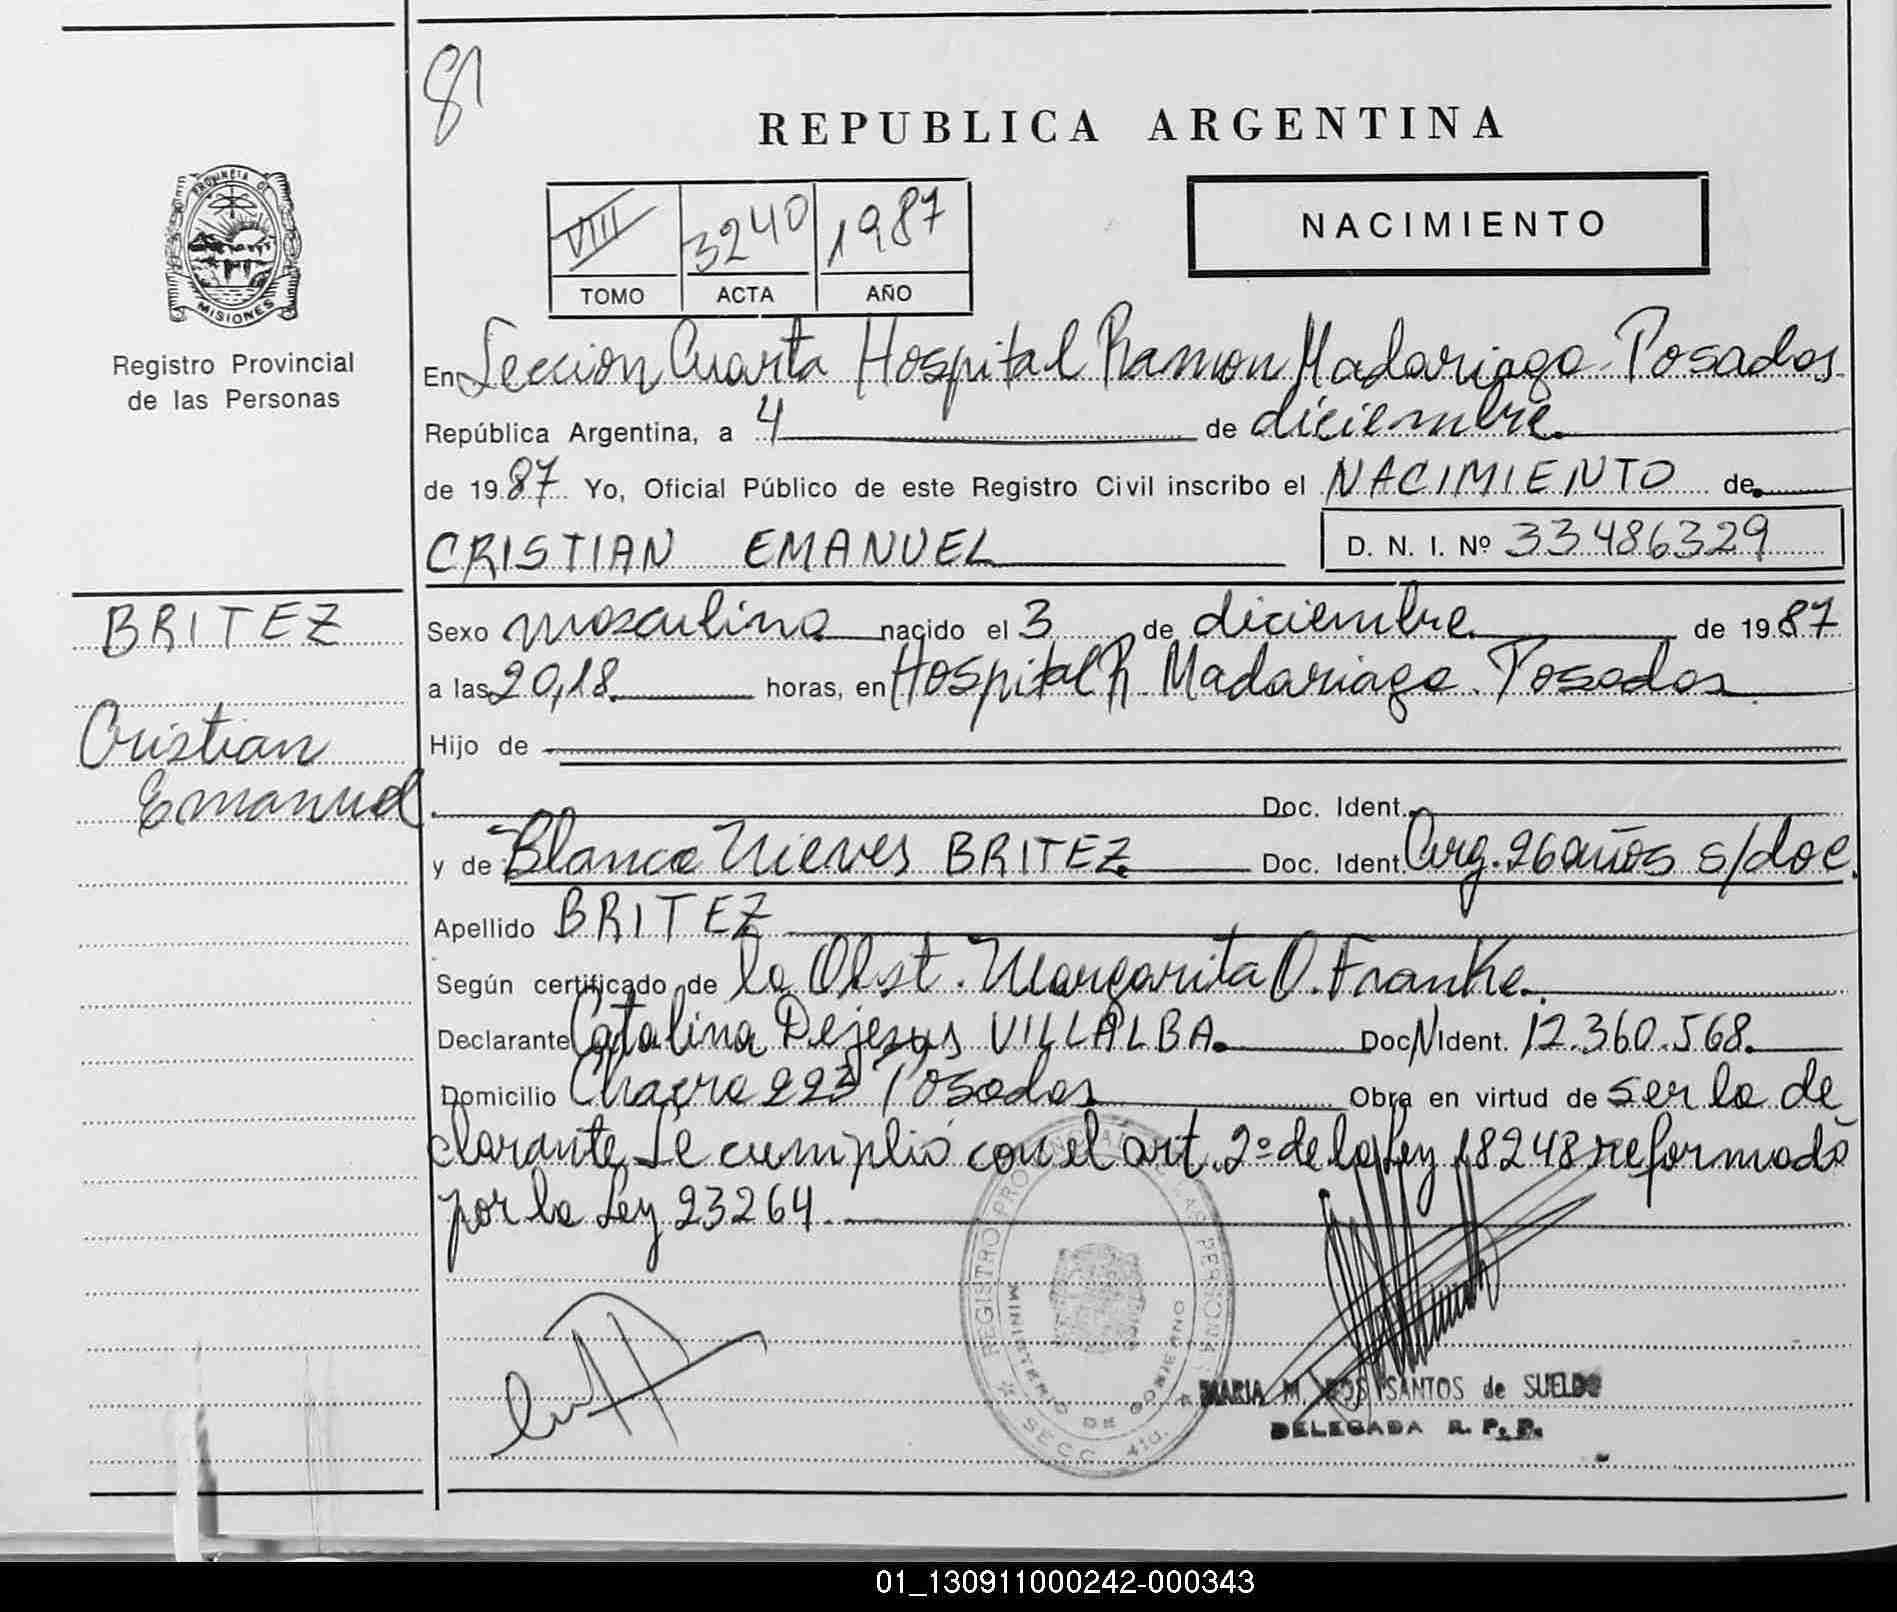 81
REPUBLICA ARGENTINA
VIII 3240 1987
TOMO ACTA AÑO
NACIMIENTO
PROVINCIA DE
MISIONES
Registro Provincial
de las Personas
En Seccion Cuarta Hospital Ramon Madariaga Posadas
República Argentina, a 4 de diciembre
de 1987 Yo, Oficial Público de este Registro Civil inscribo el NACIMIENTO de
CRISTIAN EMANUEL D. N. I. Nº 33486329
BRITEZ
Cristian
Emanuel
Sexo masculino nacido el 3 de diciembre de 1987
a las 20,18 horas, en Hospital R. Madariaga. Posadas
Hijo de
Doc. Ident.
y de Blanca Nieves BRITEZ Doc. Ident. Arg. 26 años s/doc.
Apellido BRITEZ
Según certificado de la Obst. Margarita O. Franke.
Declarante Catalina Dejesus VILLALBA. Doc N Ident. 12.360.568.
Domicilio Chacra 223 Posadas Obra en virtud de ser la de
clarante Se cumplió con el art. 2º de la Ley 18248 reformado
por la Ley 23264.
REGISTRO PROVINCIAL DE LAS PERSONAS
MINISTERIO DE GOBIERNO
SECC. 4ta.
MARIA M. DOS SANTOS de SUELDO
DELEGADA R. P. P.
01_130911000242-000343